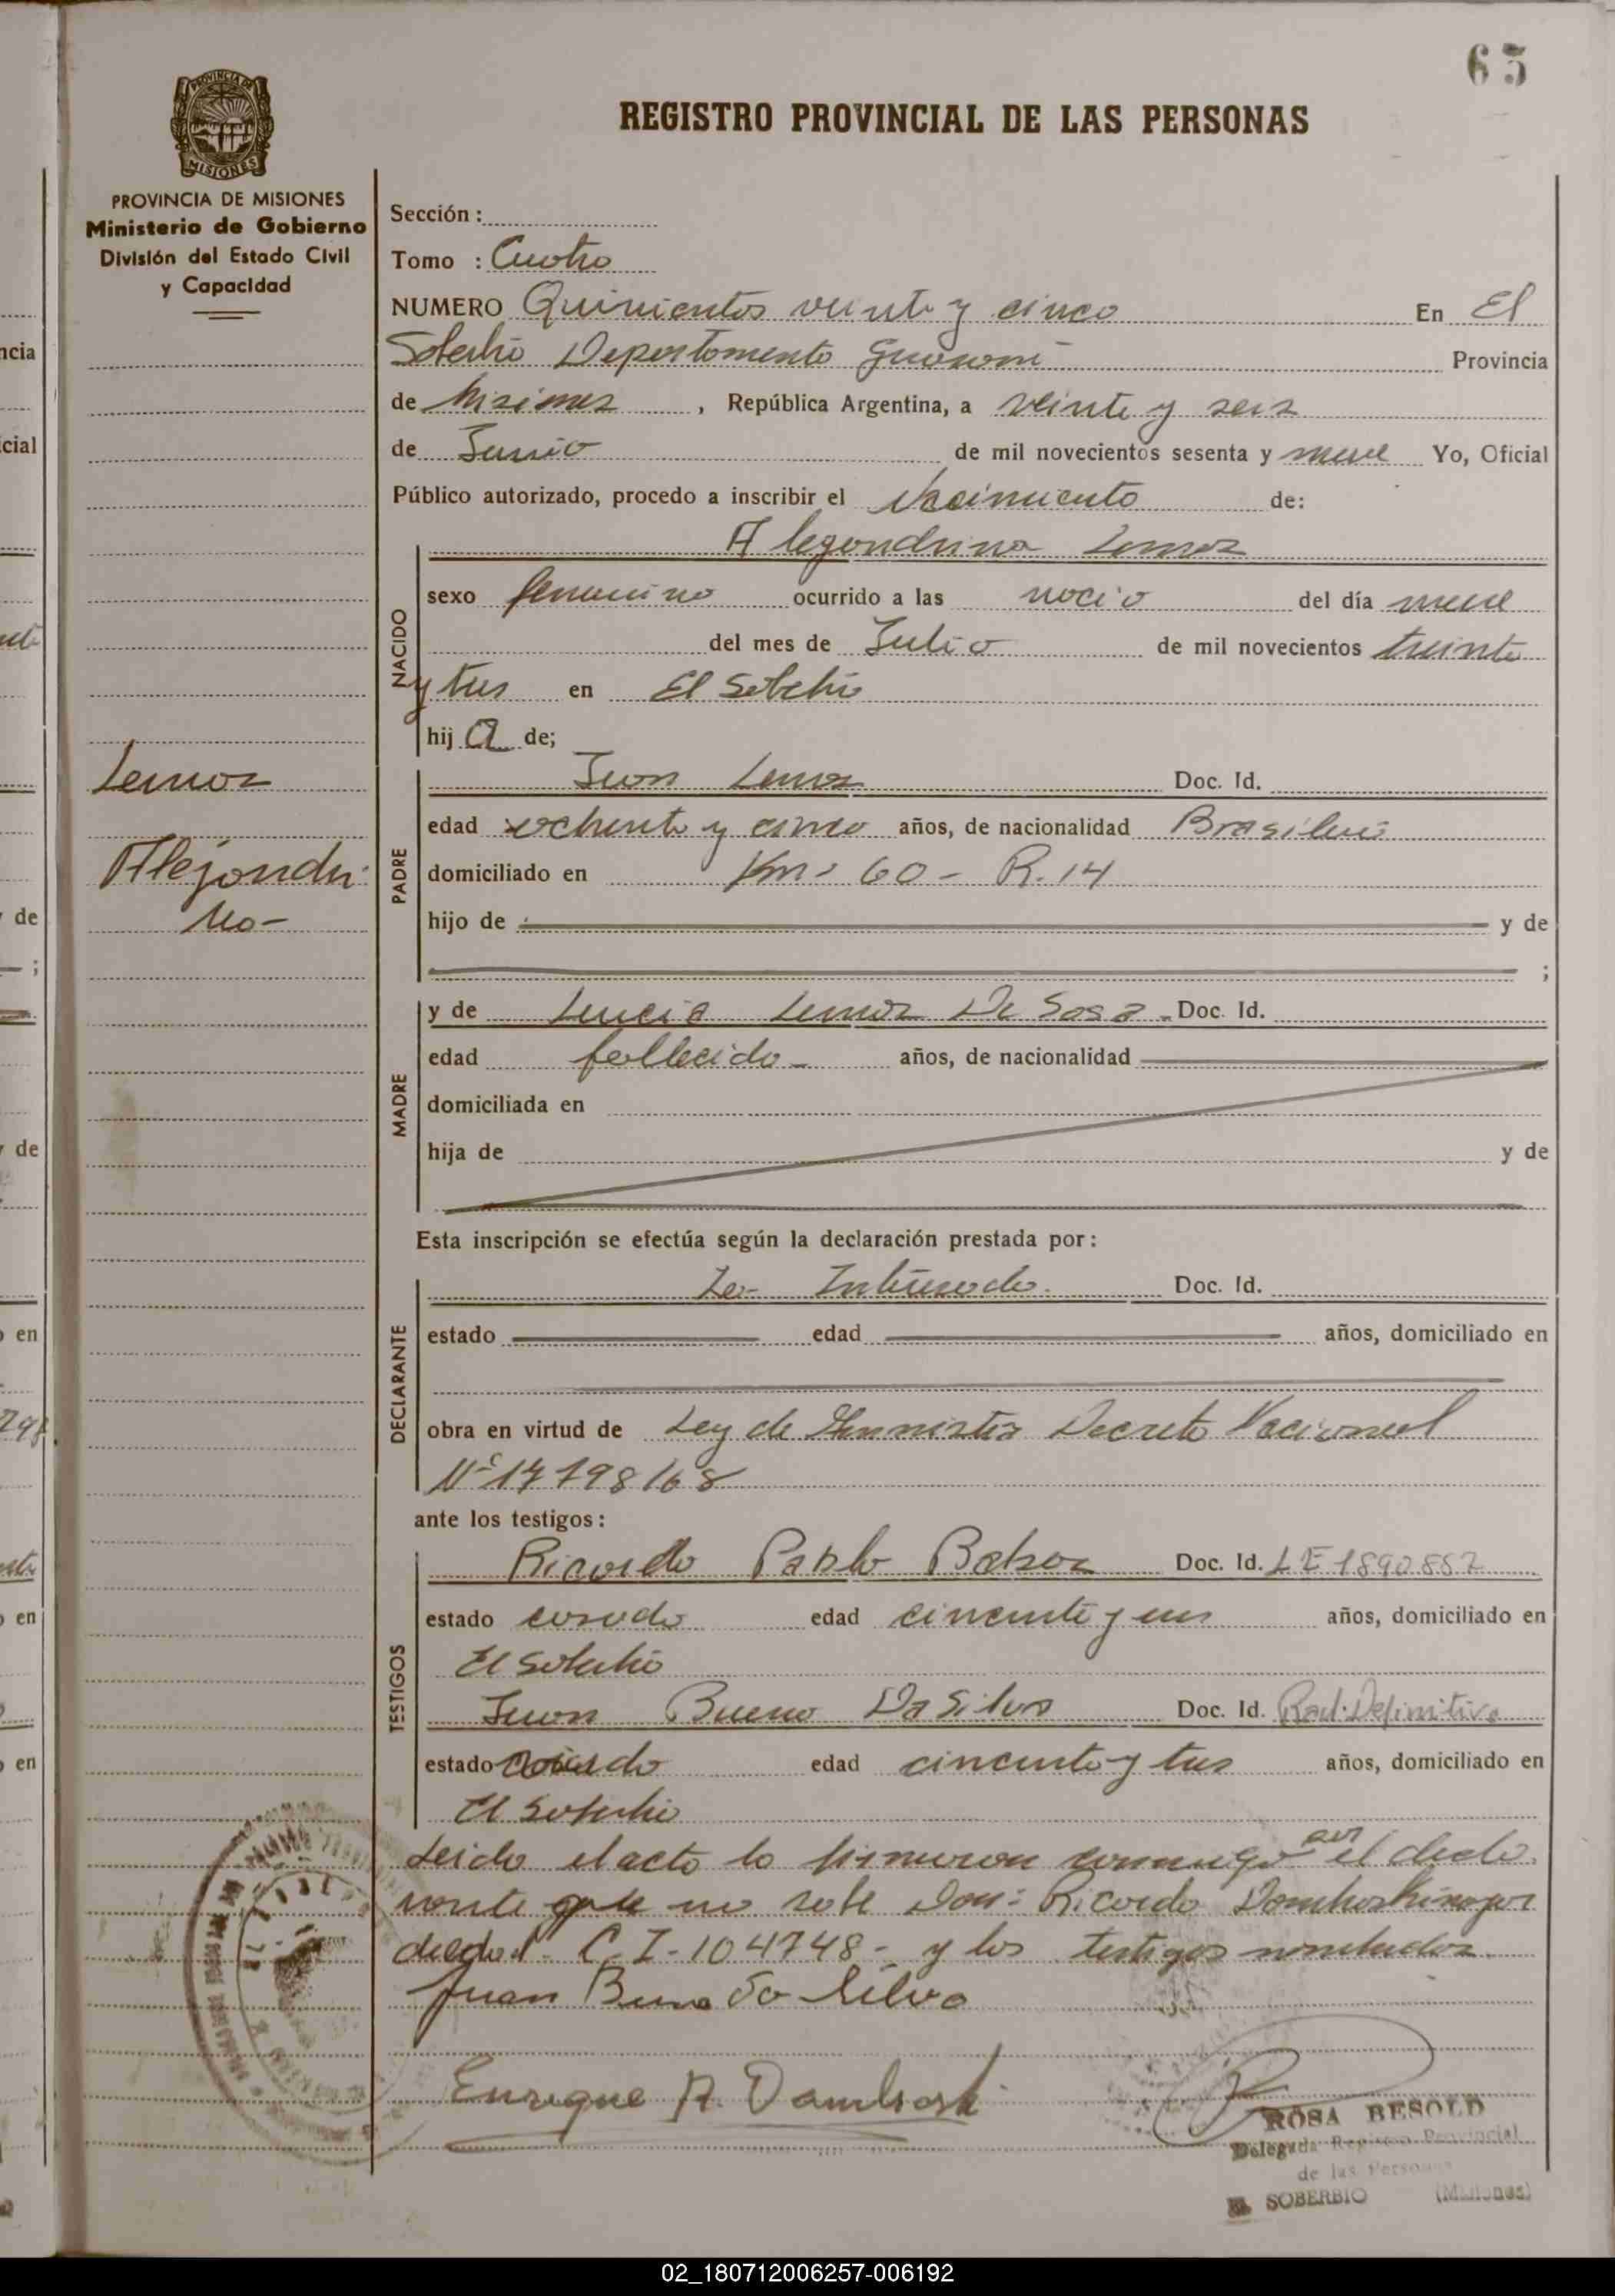 65
REGISTRO PROVINCIAL DE LAS PERSONAS
PROVINCIA DE MISIONES
Ministerio de Gobierno
División del Estado Civil
y Capacidad
Sección :
Tomo : Cuatro
NUMERO Quinientos veinte y cinco En El
Soberbio Departamento Guarani Provincia
de Misiones , República Argentina, a veinte y seis
de Junio de mil novecientos sesenta y nueve Yo, Oficial
Público autorizado, procedo a inscribir el Nacimiento de:
Alegandrina Lemos
NACIDO
sexo femenino ocurrido a las nacio del día nueve
del mes de Julio de mil novecientos treinta
y tres en El Soberbio
hij a de;
Lemos
Alejandri-
na-
PADRE
Juan Lemos Doc. Id.
edad ochenta y cinco años, de nacionalidad Brasilera
domiciliado en Km: 60 - R. 14
hijo de y de
;
MADRE
y de Lucia Lemos De Sosa - Doc. Id.
edad fallecida - años, de nacionalidad
domiciliada en
hija de y de
Esta inscripción se efectúa según la declaración prestada por:
DECLARANTE
La Interesada. Doc. Id.
estado edad años, domiciliado en
obra en virtud de Ley de Amnistia Decreto Nacional
Nº 17798/68
ante los testigos:
TESTIGOS
Ricardo Pablo Doc. Id. L E 1890.857
estado casado edad cincuenta y un años, domiciliado en
El Soberbio
Juan Bueno Da Silva Doc. Id. Rad. Definitiva
estado edad cincuenta y tres años, domiciliado en
El Soberbio
Leida el acta la firmaron conmigo por el decla
rante que no sabe Don: Ricardo
C. I - 104748 - y los testigos nombrados.
Juan Bueno Da Silva
Enrique A.
ROSA BESOLD
Delegada Registro Provincial
de las Personas
EL SOBERBIO (Misiones)
02_180712006257-006192